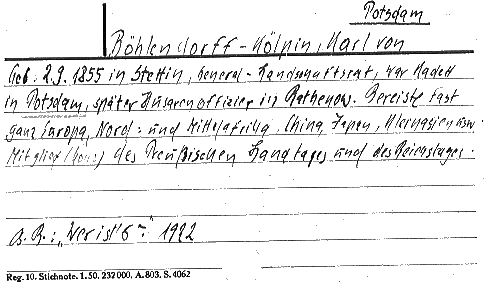 Potsdam
Böhlendorff-Kölpin, Karl von
Geb. 2.9. 1855 in Stettin, General-Landschaftsrat, war Kadett
in Potsdam, später Husarenoffizier in Rathenow. Bereiste fast
ganz Europa, Nord- und Mittelafrika, China, Japan, Kleinasien usw.
Mitglied (kons.) des Preußischen Landtages und des Reichstages.
"Wer ist's" 1922
Reg. 10. Stichnote. 1. 50. 232000. A. 803. S. 4062